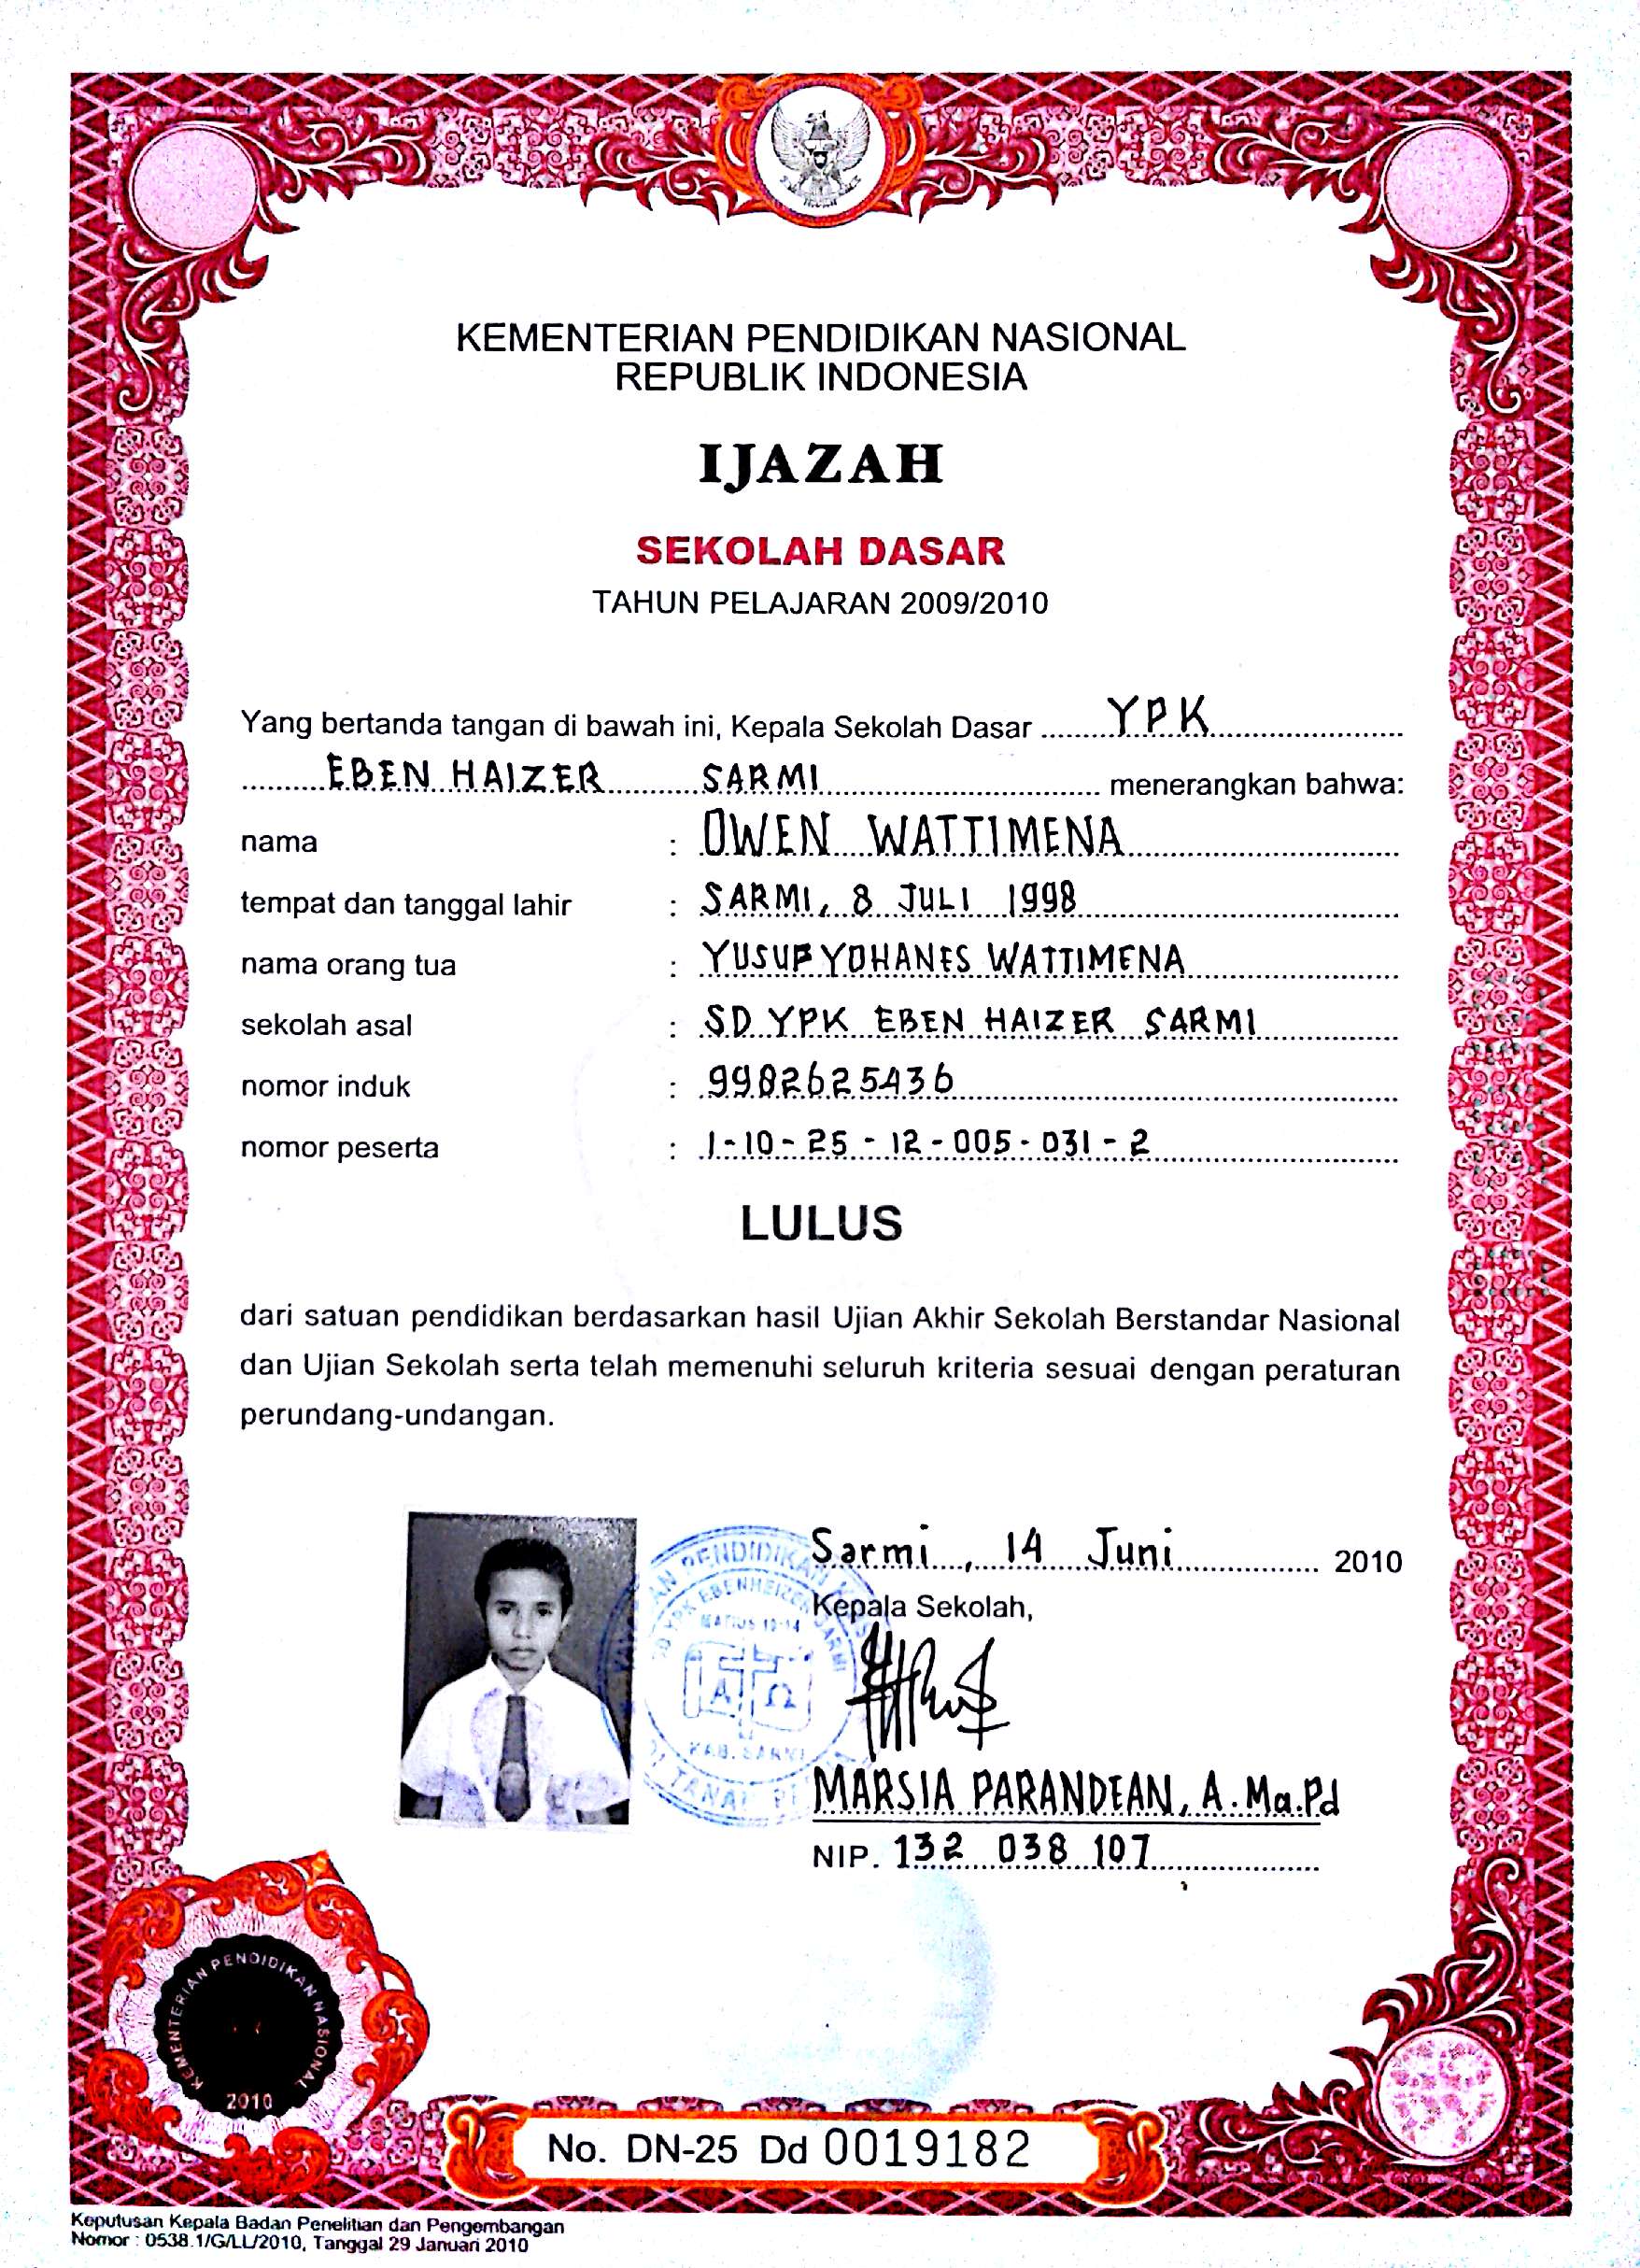 KEMENTERIAN PENDIDIKAN NASIONAL
REPUBLIK INDONESIA
IJAZAH
SEKOLAH DASAR
TAHUN PELAJARAN 2009/2010
Yang bertanda tangan di bawah ini, Kepala Sekolah Dasar YPK
EBEN HAIZER SARMI menerangkan bahwa:
nama : OWEN WATTIMENA
tempat dan tanggal lahir : SARMI, 8 JULI 1998
nama orang tua : YUSUP YOHANES WATTIMENA
sekolah asal : SD YPK EBEN HAIZER SARMI
nomor induk : 9982625436
nomor peserta : 1-10-25-12-005-031-2
LULUS
dari satuan pendidikan berdasarkan hasil Ujian Akhir Sekolah Berstandar Nasional
dan Ujian Sekolah serta telah memenuhi seluruh kriteria sesuai dengan peraturan
perundang-undangan.
Sarmi, 14 Juni 2010
Kepala Sekolah,
PENDIDIKAN
SD YPK EBENHEIZER SARMI
MATIUS 19-14
A Ω
KAB. SARMI
DI TANAH
MARSIA PARANDEAN, A.Ma.Pd
NIP. 132 038 107
KEMENTERIAN PENDIDIKAN NASIONAL
2010
No. DN-25 Dd 0019182
Keputusan Kepala Badan Penelitian dan Pengembangan
Nomor : 0538.1/G/LL/2010, Tanggal 29 Januari 2010